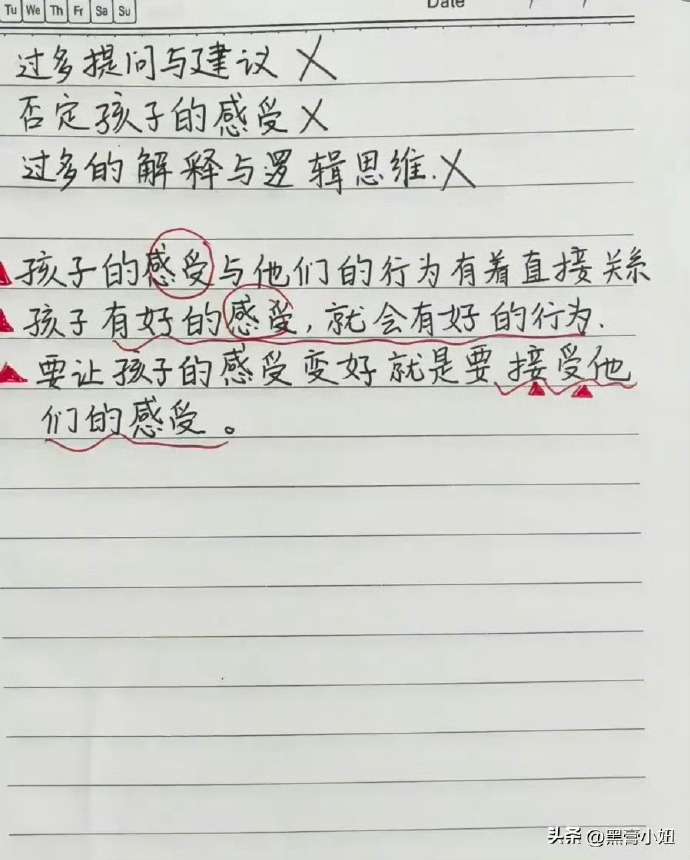 Tu We Th Fr Sa Su
Date / /
过多提问与建议 X
否定孩子的感受 X
过多的解释与逻辑思维. X
孩子的感受与他们的行为有着直接关系
孩子有好的感受, 就会有好的行为.
要让孩子的感受变好就是要接受他
们的感受。
头条 @黑膏小妞